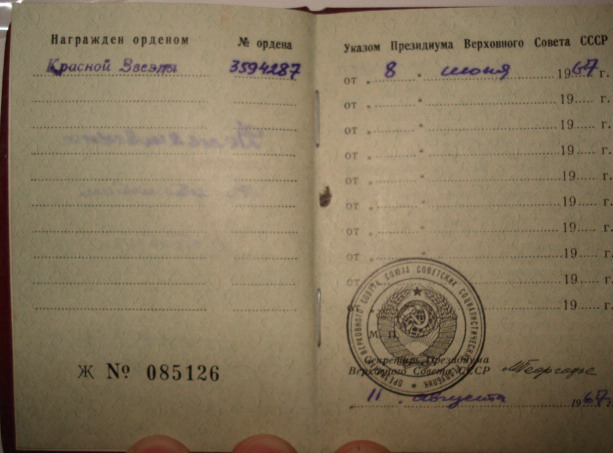 Награжден орденом
№ ордена
Красной Звезды
3594287
Ж № 085126
Указом Президиума Верховного Совета СССР
от „ 8 " июня 1967 г.
от „ " 19 г.
от „ " 19 г.
от „ " 19 г.
от „ " 19 г.
от „ " 19 г.
от „ " 19 г.
от „ " 19 г.
от „ " 19 г.
от 19 г.
М. П.
Секретарь Президиума
Верховного Совета СССР
11 августа 1967 г.